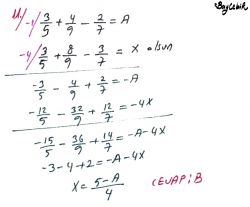 Bayçelik
-1/ 3/5 + 4/9 - 2/7 = A
-4/ 3/5 + 8/9 - 3/7 = X olsun
-3/5 - 4/9 + 2/7 = -A
-12/5 - 32/9 + 12/7 = -4X
-15/5 - 36/9 + 14/7 = -A-4X
-3-4+2 = -A-4X
X = 5-A/4
CEVAP: B